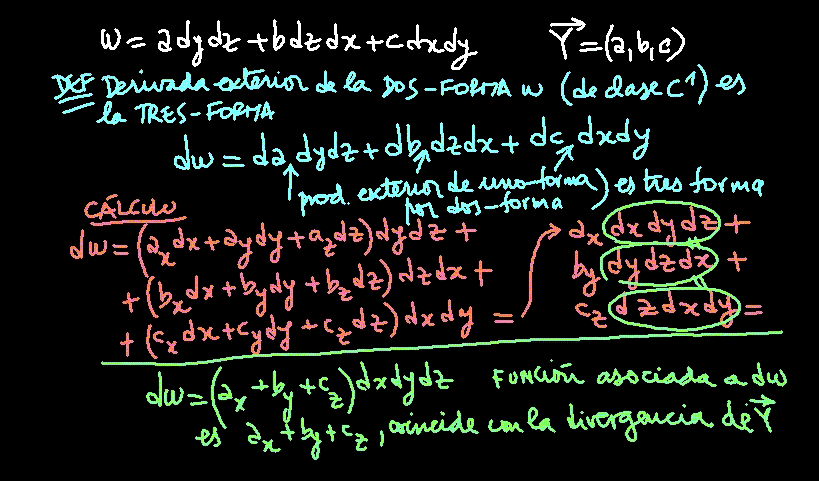 w = a dy dz + b dz dx + c dx dy    Y⃗ = (a, b, c)
DEF Derivada exterior de la DOS-FORMA w (de clase C¹) es
la TRES-FORMA
dw = da, dy dz + db, dz dx + dc, dx dy
prod. exterior de uno-forma
por dos-forma ) es tres forma
CÁLCULO
dw = (a_x dx + a_y dy + a_z dz) dy dz +
+ (b_x dx + b_y dy + b_z dz) dz dx +
+ (c_x dx + c_y dy + c_z dz) dx dy =
a_x dx dy dz +
b_y dy dz dx +
c_z dz dx dy =
dw = (a_x + b_y + c_z) dx dy dz    FUNCIÓN asociada a dw
es a_x + b_y + c_z, coincide con la divergencia de Y⃗